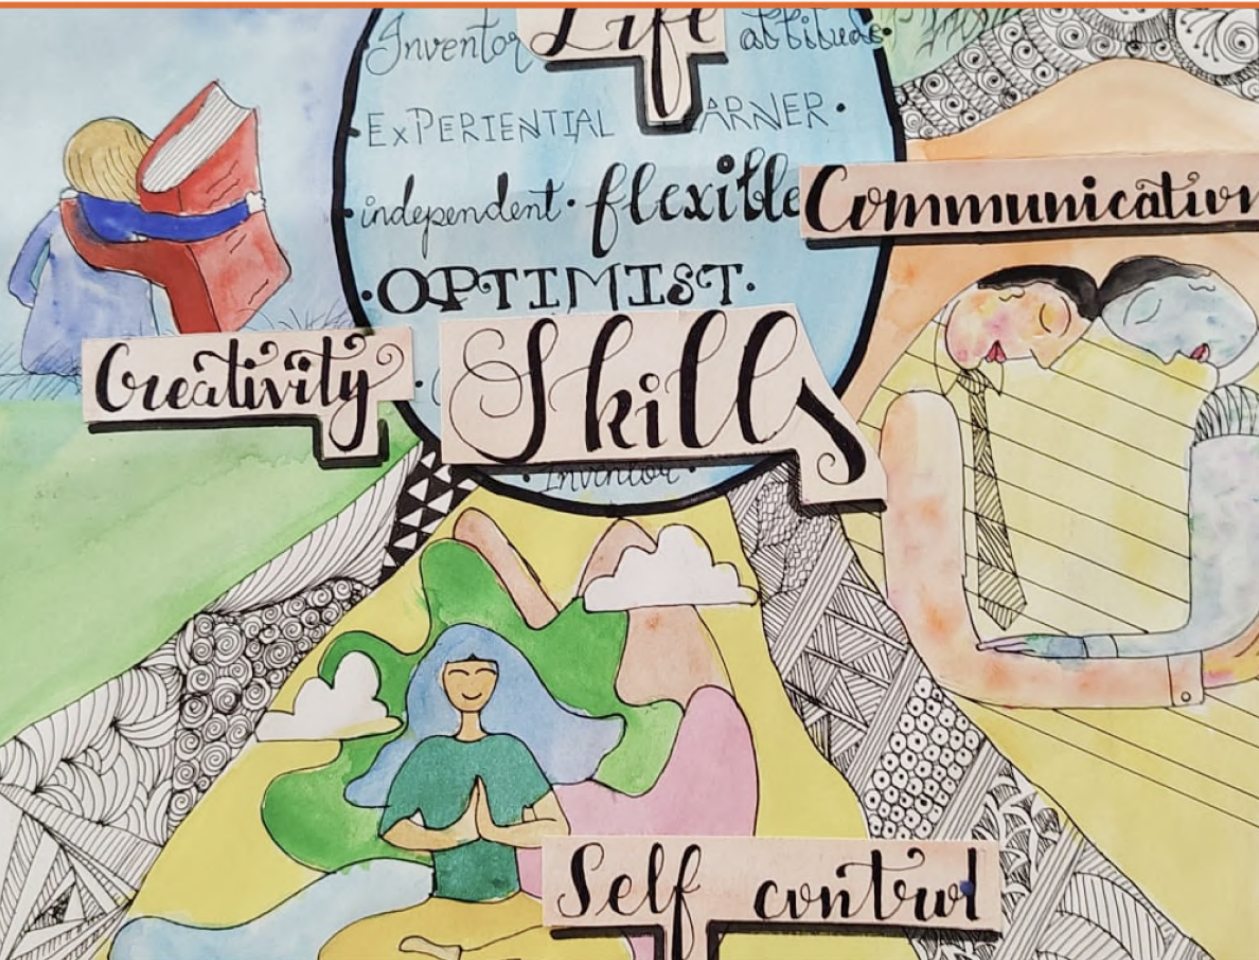 Inventor Life attitude.
EXPERIENTIAL ARNER.
independent. flexible Communication
OPTIMIST.
Creativity Skills
Inventor.
Self control